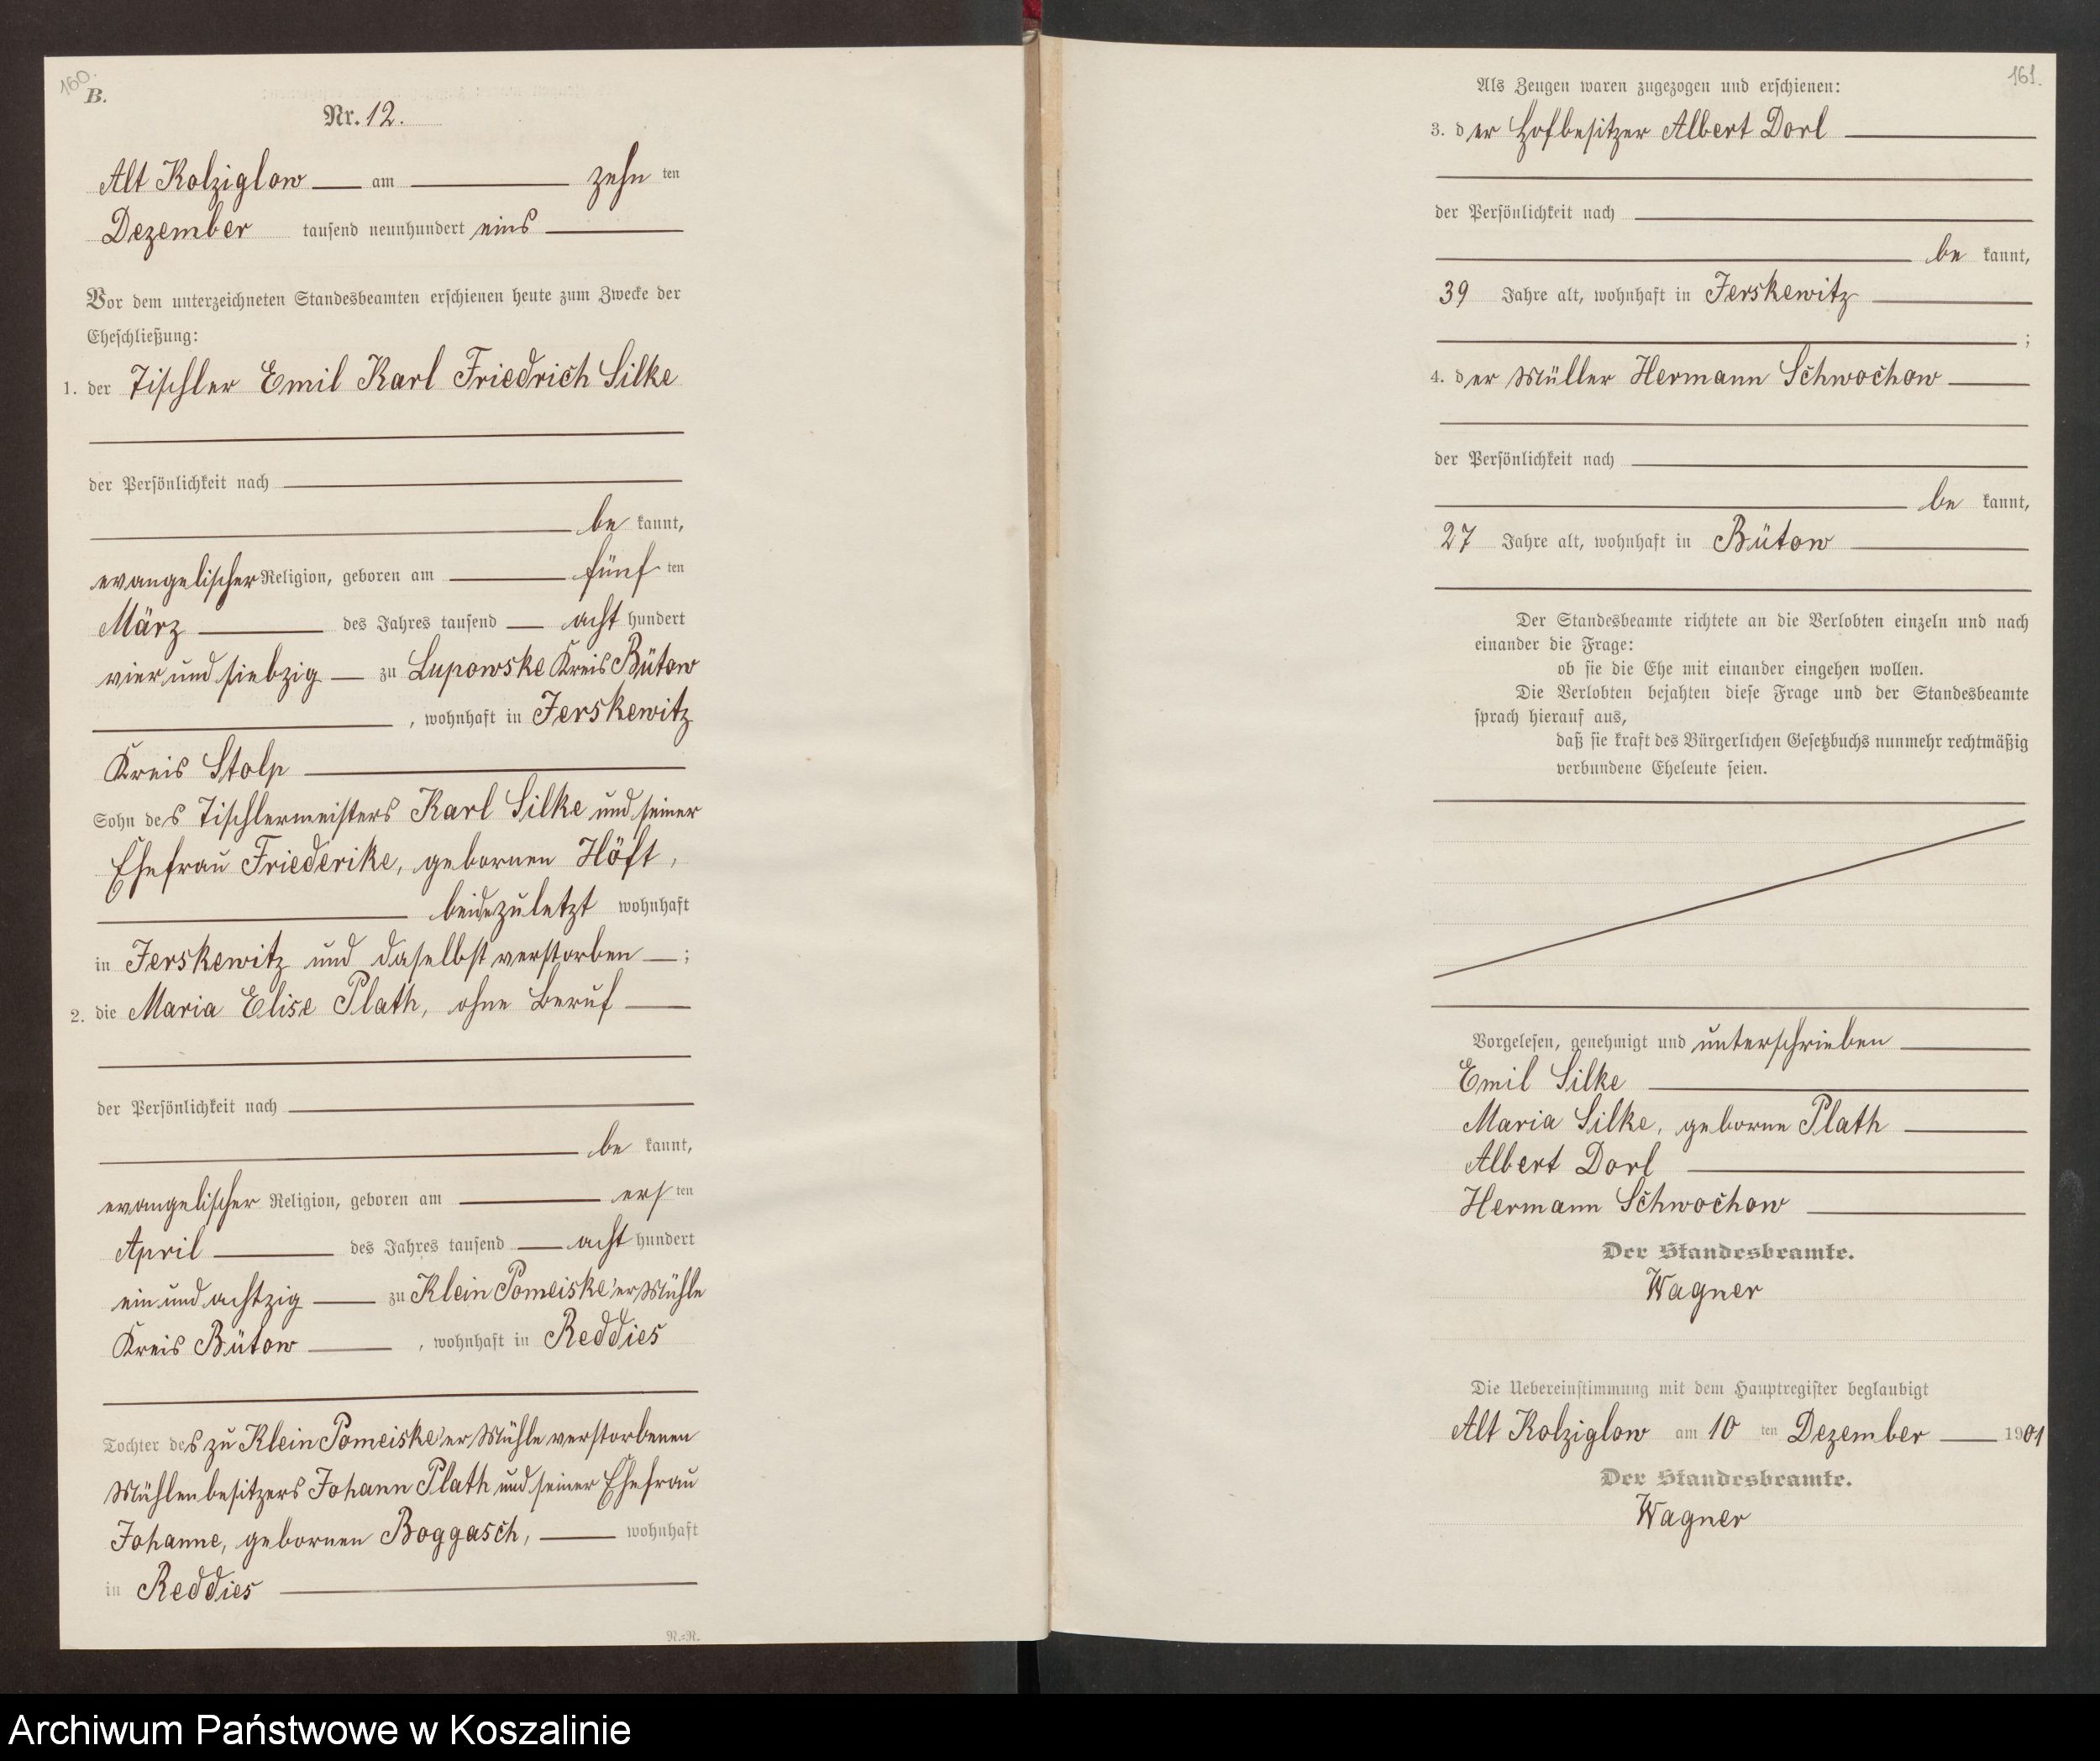 160.
B.
Nr. 12.
Alt Kolziglow am zehn ten
Dezember tausend neunhundert eins
Vor dem unterzeichneten Standesbeamten erschienen heute zum Zwecke der
Eheschließung:
1. der Tischler Emil Karl Friedrich Silke
der Persönlichkeit nach
be kannt,
evangelischer Religion, geboren am fünf ten
März des Jahres tausend acht hundert
vier und siebzig zu Lupowske Kreis Bütow
, wohnhaft in Jerskewitz
Kreis Stolp
Sohn des Tischlermeisters Karl Silke und seiner
Ehefrau Friederike, gebornen Höft,
beide zuletzt wohnhaft
in Jerskewitz und daselbst verstorben ;
2. die Maria Elise Plath, ohne Beruf
der Persönlichkeit nach
be kannt,
evangelischer Religion, geboren am ers ten
April des Jahres tausend acht hundert
ein und achtzig zu Klein Pomeiske'er Mühle
Kreis Bütow , wohnhaft in Reddies
Tochter des zu Klein Pomeiske'er Mühle verstorbenen
Mühlenbesitzers Johann Plath und seiner Ehefrau
Johanne, gebornen Boggasch, wohnhaft
in Reddies
N.=N.
161.
Als Zeugen waren zugezogen und erschienen:
3. der Hofbesitzer Albert Dorl
der Persönlichkeit nach
be kannt,
39 Jahre alt, wohnhaft in Jerskewitz
;
4. der Müller Hermann Schwochow
der Persönlichkeit nach
be kannt,
27 Jahre alt, wohnhaft in Bütow
Der Standesbeamte richtete an die Verlobten einzeln und nach
einander die Frage:
ob sie die Ehe mit einander eingehen wollen.
Die Verlobten bejahten diese Frage und der Standesbeamte
sprach hierauf aus,
daß sie kraft des Bürgerlichen Gesetzbuchs nunmehr rechtmäßig
verbundene Eheleute seien.
Vorgelesen, genehmigt und unterschrieben
Emil Silke
Maria Silke, geborne Plath
Albert Dorl
Hermann Schwochow
Der Standesbeamte.
Wagner
Die Uebereinstimmung mit dem Hauptregister beglaubigt
Alt Kolziglow am 10 ten Dezember 1901
Der Standesbeamte.
Wagner
Archiwum Państwowe w Koszalinie